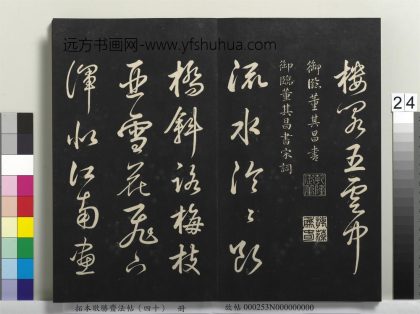 远方书画网-www.yfshuhua.com
樓閣五雲中
御臨董其昌書
御臨董其昌書宋詞
流水泠〻斷
橋斜路梅枝
亞雪花飛下
渾似江南畫
24
拓本敬勝齋法帖(四十) 册
故帖 000253N000000000